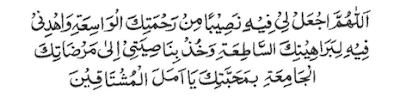 اَللّٰهُمَّ اجْعَلْ لِیْ فِیْهِ نَصِیْبًا مِنْ رَحْمَتِكَ الْوَاسِعَةِ وَاهْدِنِیْ
فِیْهِ لِبَرَاهِیْنِكَ السَّاطِعَةِ وَخُذْ بِنَاصِیَتِیْ اِلٰی مَرْضَاتِكَ
الْجَامِعَةِ بِمَحَبَّتِكَ یَا اَمَلَ الْمُشْتَاقِیْنَ